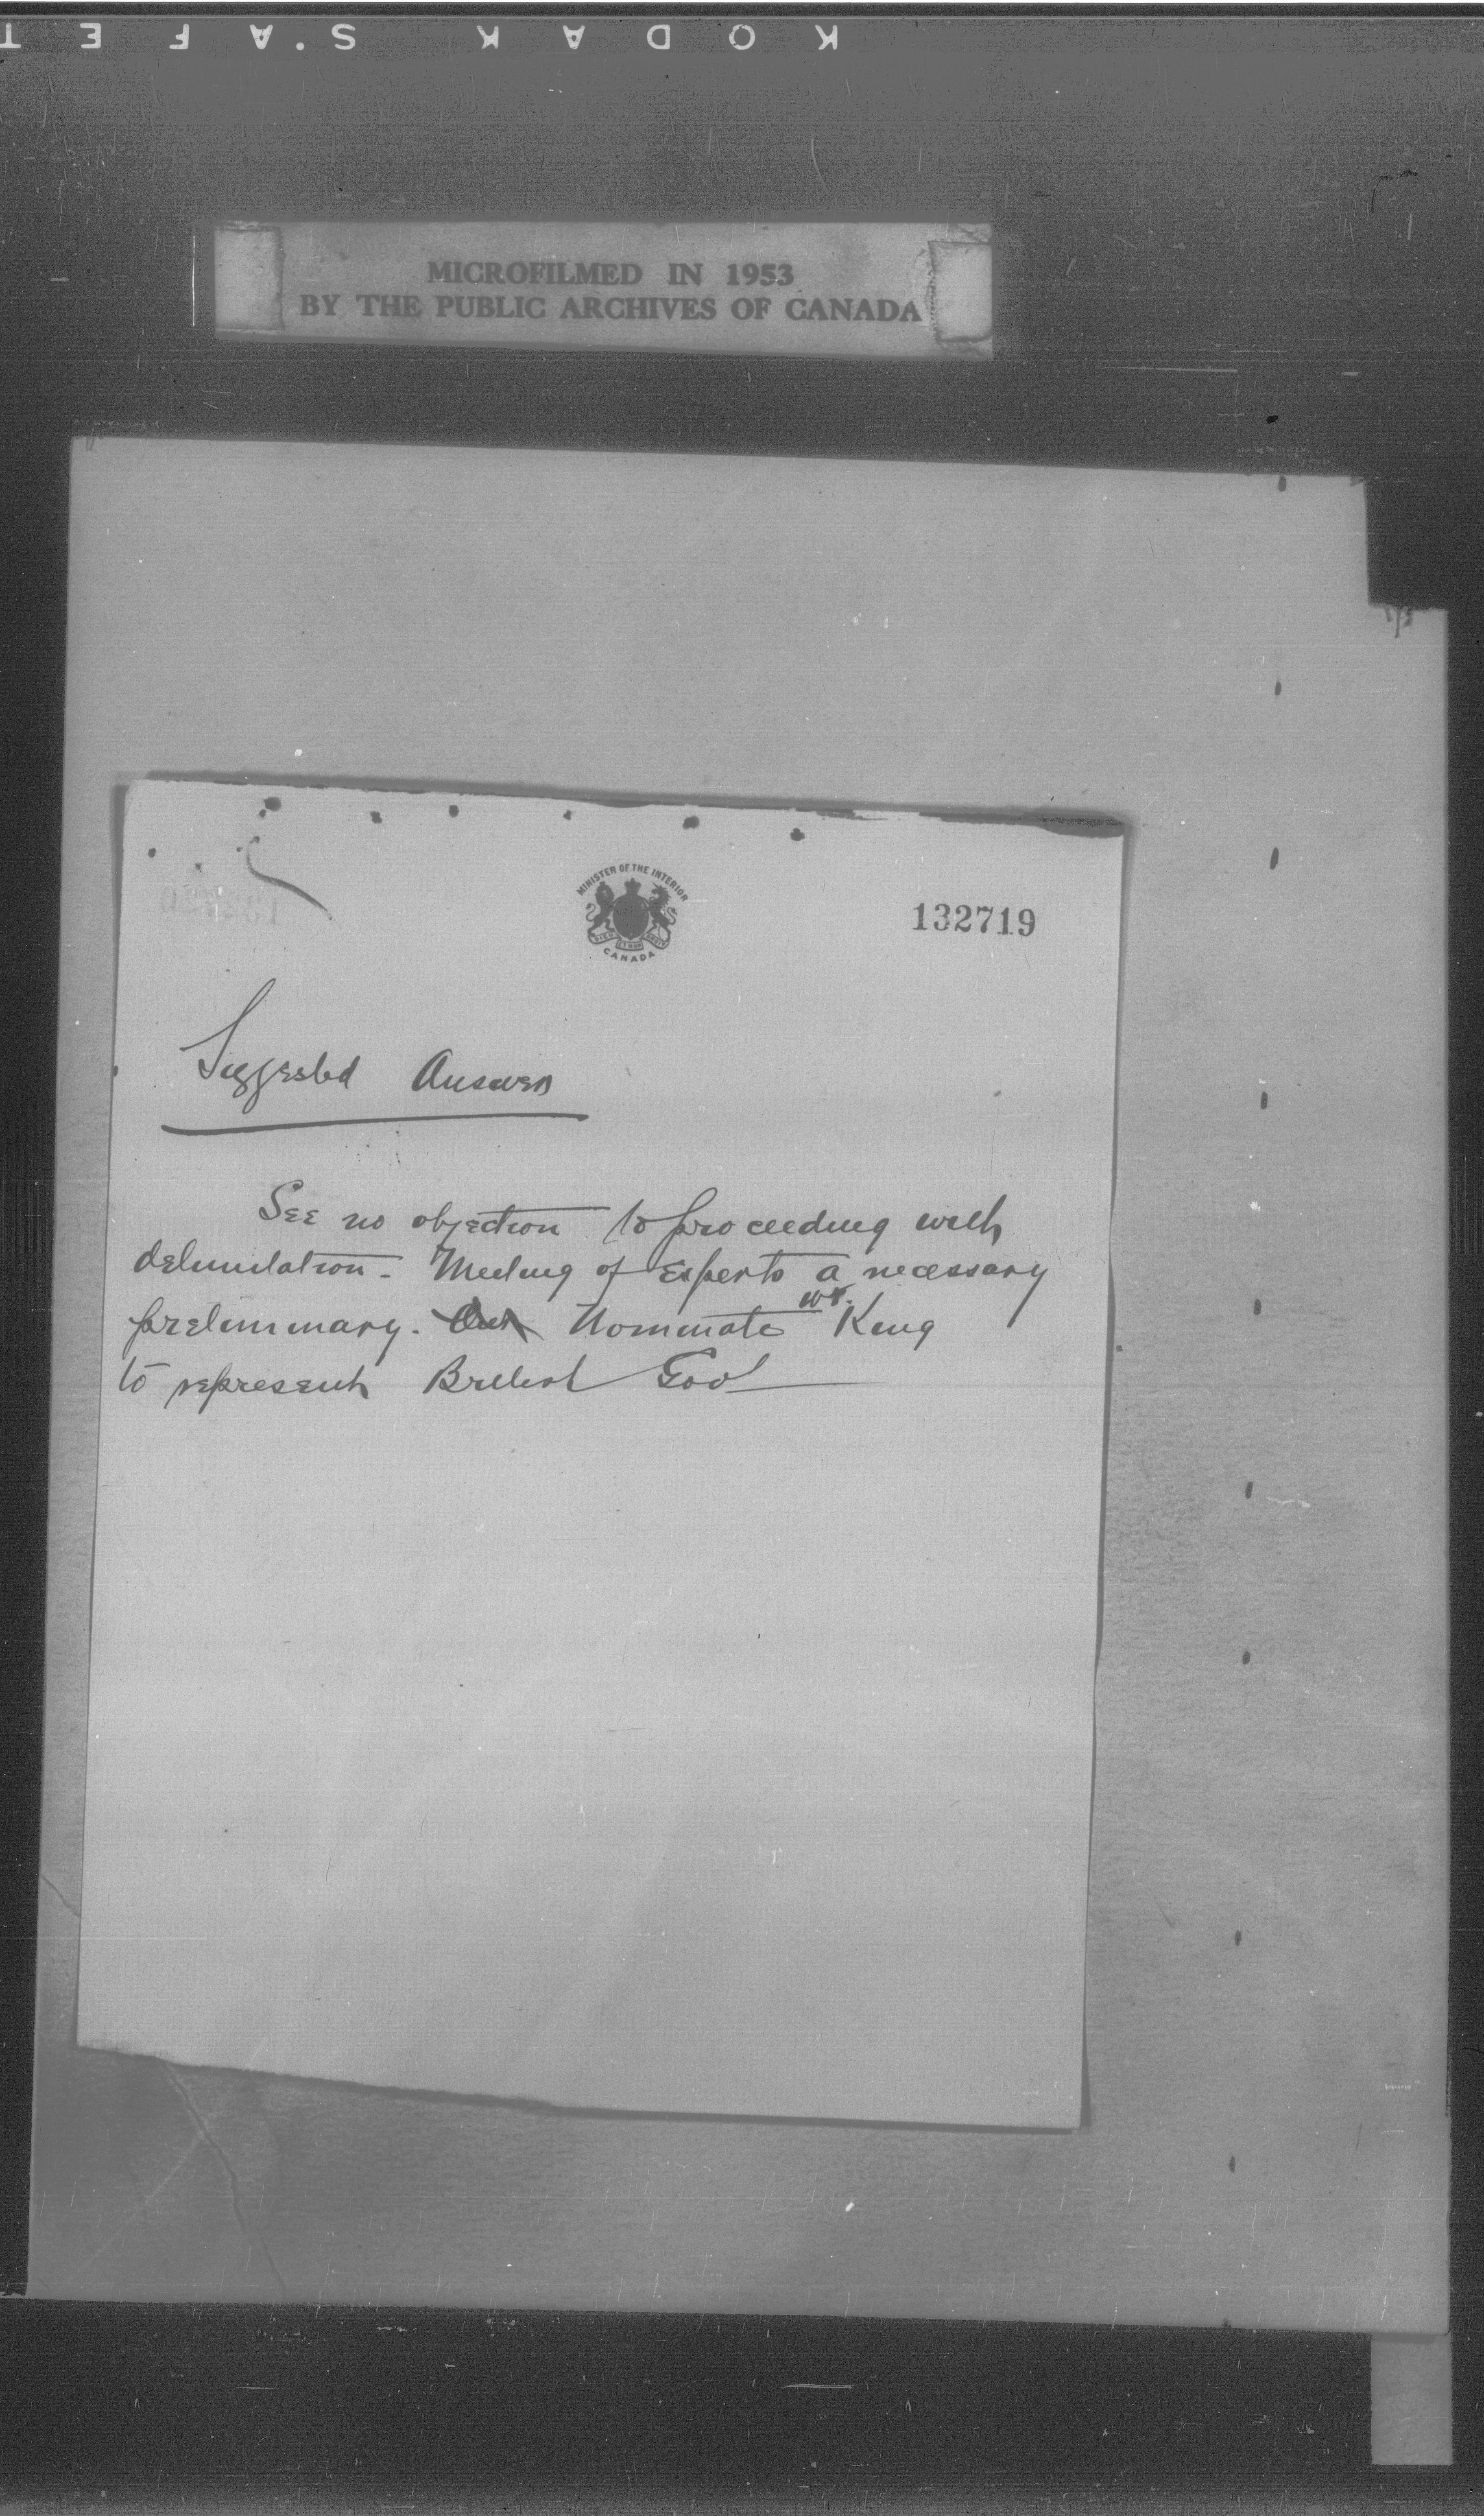 KODAK S'AFET
MICROFILMED IN 1953
BY THE PUBLIC ARCHIVES OF CANADA
MINISTER OF THE INTERIOR
CANADA
132719
Suggested Answer
See no objection to proceeding with
delimitation - Meeting of Experts a necessary
preliminary. Nominate W.F. King
to represent British Govt